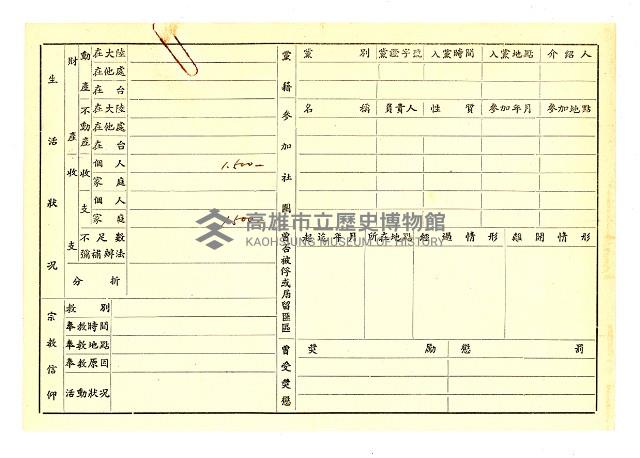 生活狀況
財產
動產
在大陸
在他處
在台
不動產
在大陸
在他處
在台
收支
收
個人 1.500-
家庭
支
個人
家庭 1.500
不足數
彌補辦法
分析
宗教信仰
教別
奉教時間
奉教地點
奉教原因
活動狀況
黨籍
黨別 黨證字號 入黨時間 入黨地點 介紹人
參加社團
名稱 負責人 性質 參加年月 參加地點
曾否被俘或居留匪區
起迄年月 所在地點 經過情形 離開情形
曾受獎懲
獎勵 懲罰
高雄市立歷史博物館
KAOHSIUNG MUSEUM OF HISTORY